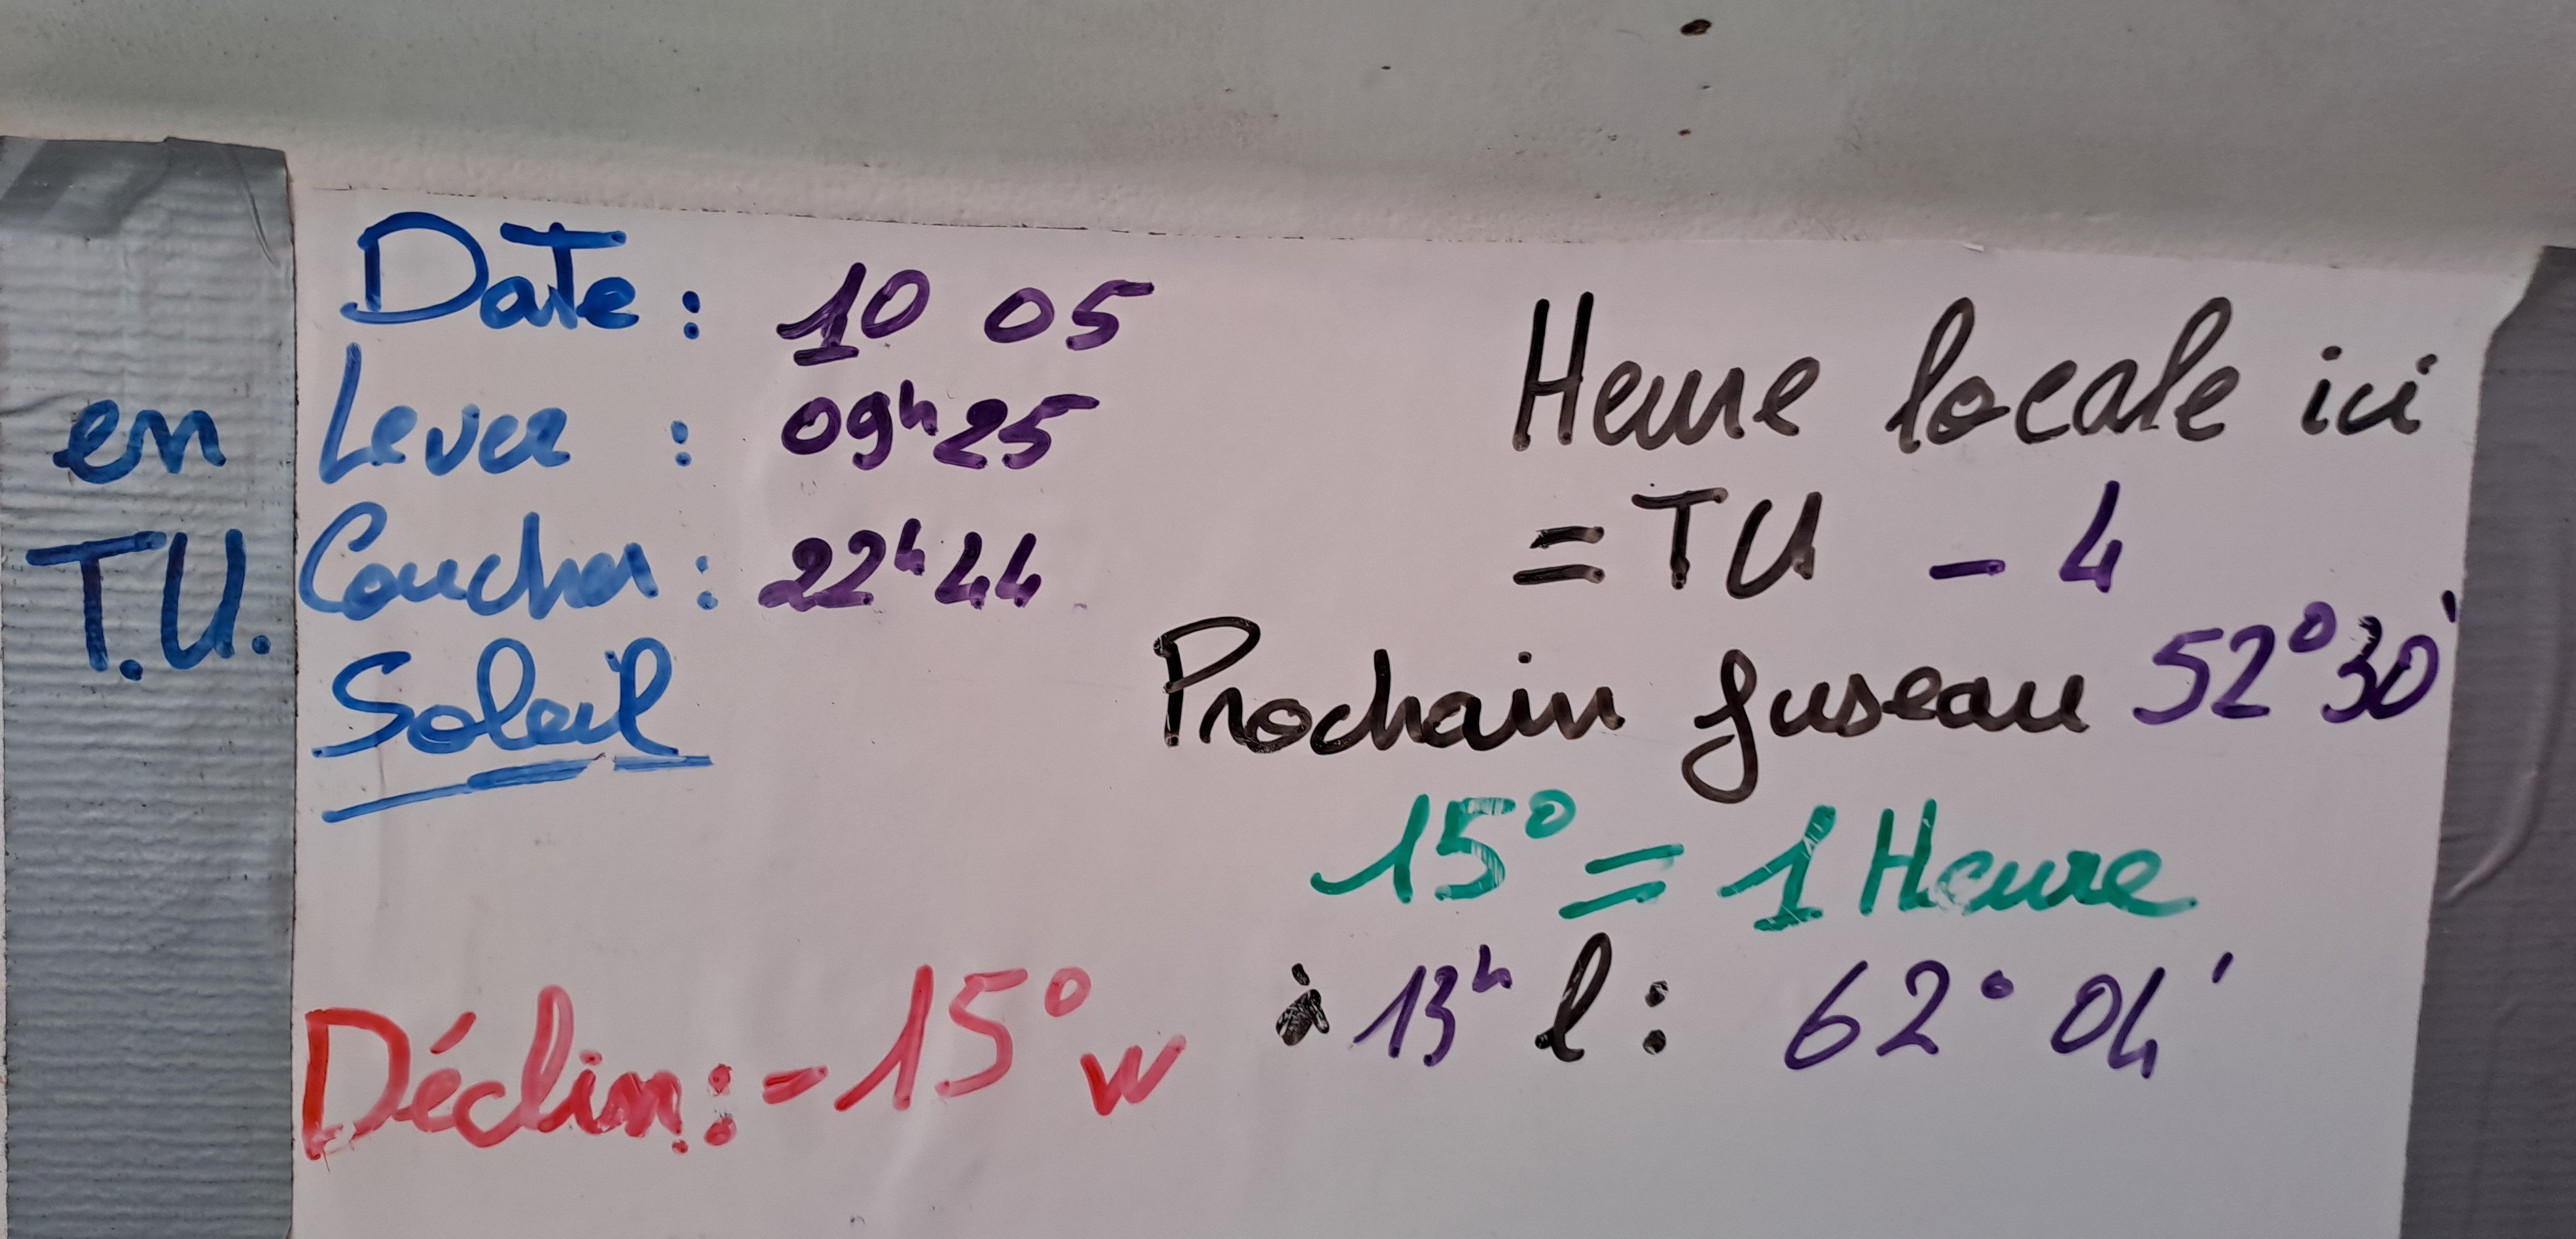 Date : 10 05
en Lever : 09h25
T.U. Coucher : 22h44
Soleil
Déclin : - 15° W
Heure locale ici
= TU - 4
Prochain fuseau 52°30'
15° = 1 Heure
à 13h l : 62° 04'